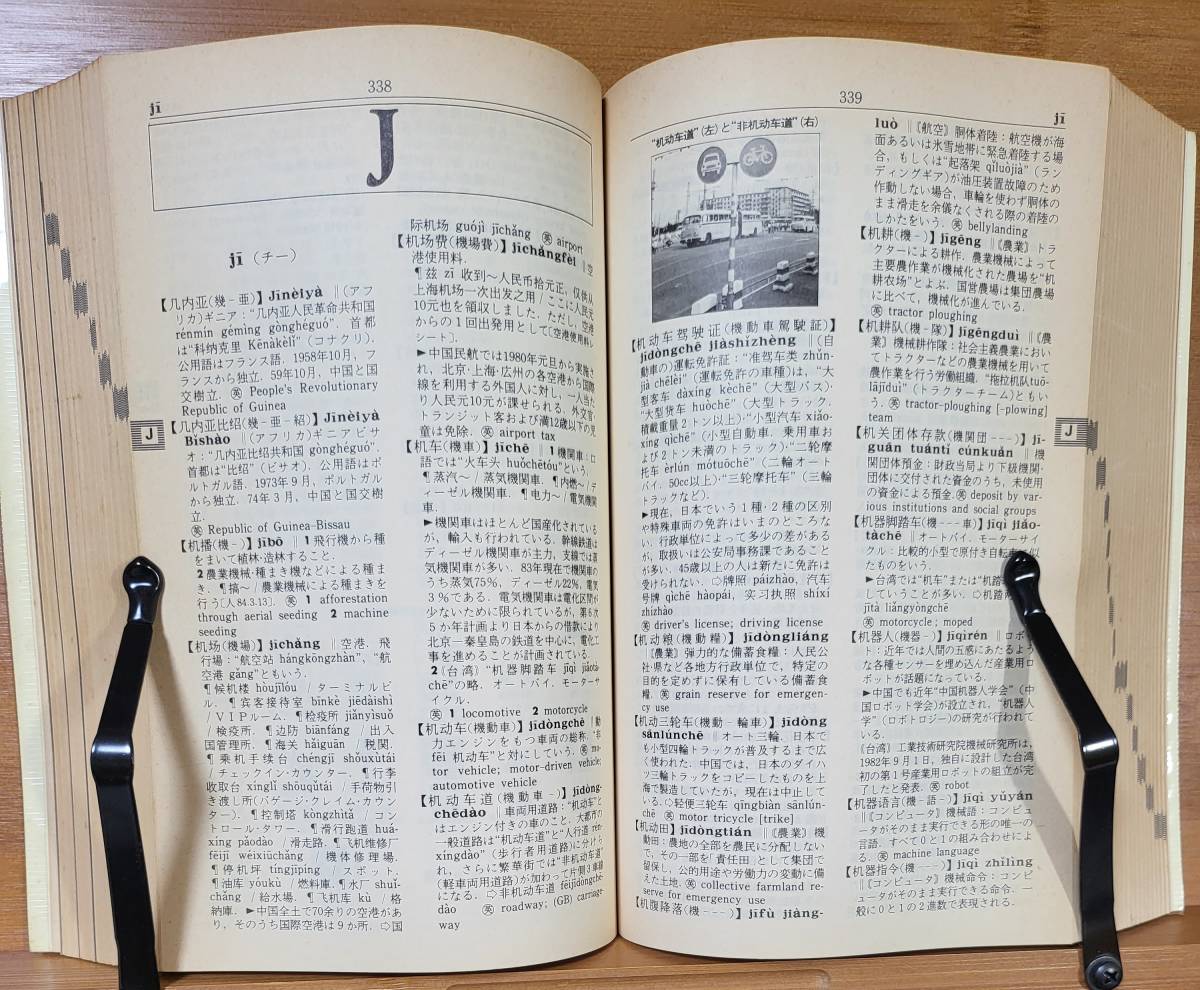 jī
338
J
jī (チー)
【几内亚(幾-亜)】Jīnèiyà ‖(アフ
リカ)ギニア:“几内亚人民革命共和国
rénmín gémìng gònghéguó”. 首都
は“科纳克里 Kēnàkèlǐ”(コナクリ).
公用語はフランス語. 1958年10月, フ
ランスから独立. 59年10月, 中国と国
交樹立. 英 People's Revolutionary
Republic of Guinea
【几内亚比绍(幾-亜-紹)】Jīnèiyà
Bǐshào ‖(アフリカ)ギニアビサ
オ:“几内亚比绍共和国 gònghéguó”.
首都は“比绍”(ビサオ). 公用語はポ
ルトガル語. 1973年9月, ポルトガル
から独立. 74年3月, 中国と国交樹
立.
英 Republic of Guinea-Bissau
【机播(機-)】jībō ‖1 飛行機から種
をまいて植林·造林すること.
2 農業機械·種まき機などによる種ま
き. ¶搞~/農業機械による種まきを
行う[人84.3.13]. 英 1 afforestation
through aerial seeding 2 machine
seeding
【机场(機場)】jīchǎng ‖空港. 飛
行場:“航空站 hángkōngzhàn”, “航
空港 gǎng”ともいう.
¶候机楼 hòujīlóu / ターミナルビ
ル. ¶宾客接待室 bīnkè jiēdàishì
/ VIPルーム. ¶检疫所 jiǎnyìsuǒ
/ 検疫所. ¶边防 biānfáng / 出入
国管理所. ¶海关 hǎiguān / 税関.
¶乘机手续台 chéngjī shǒuxùtái
/ チェックイン·カウンター. ¶行李
收取台 xínglǐ shōuqǔtái / 手荷物引
き渡し所(バゲージ·クレイム·カウン
ター). ¶控制塔 kòngzhìtǎ / コン
トロール·タワー. ¶滑行跑道 huá-
xíng pǎodào / 滑走路. ¶飞机维修厂
fēijī wéixiūchǎng / 機体修理場.
¶停机坪 tíngjīpíng / スポット.
¶油库 yóukù / 燃料庫. ¶水厂 shuǐ-
chǎng / 給水場. ¶飞机库 kù / 格
納庫. ►中国全土で70余りの空港があ
り, そのうち国際空港は9か所. ⇨国
际机场 guójì jīchǎng 英 airport
【机场费(機場費)】jīchǎngfèi ‖空
港使用料.
¶兹 zī 收到~人民币拾元正, 仅供从
上海机场一次出发之用 / ここに人民元
10元也を領収しました. ただし, 空港
からの1回出発用として[空港使用料レ
シート].
►中国民航では1980年元旦から実施さ
れ, 北京·上海·広州の各空港から国際
線を利用する外国人に対し, 一人当た
り人民元10元が課せられる. 外交官·
トランジット客および満12歳以下の児
童は免除. 英 airport tax
【机车(機車)】jīchē ‖1 機関車:口
語では“火车头 huǒchētóu”という.
¶蒸汽~ / 蒸気機関車. ¶内燃~/デ
ィーゼル機関車. ¶电力~ / 電気機関
車.
►機関車はほとんど国産化されている
が, 輸入も行われている. 幹線鉄道は
ディーゼル機関車が主力, 支線では蒸
気機関車が多い. 83年現在で機関車の
うち蒸気75%, ディーゼル22%, 電気
3%である. 電気機関車は電化区間が
少ないために限られているが, 第6次
5か年計画より日本からの借款により
北京—秦皇島の鉄道を中心に, 電化工
事を進めることが計画されている.
2(台湾)“机器脚踏车 jīqì jiǎotà-
chē”の略. オートバイ. モーターサ
イクル.
英 1 locomotive 2 motorcycle
【机动车(機動車)】jīdòngchē ‖動
力エンジンをもつ車両の総称. “非
fēi 机动车”と対にしている. 英 mo-
tor vehicle; motor-driven vehicle;
automotive vehicle
【机动车道(機動車-)】jīdòng-
chēdào ‖車両用道路:“机动车”と
はエンジン付きの車のこと. 大都市の
一般道路は“机动车道”と“人行道 rén-
xíngdào”(歩行者用道路)に分けら
れ, さらに繁華街では“非机动车道”
(軽車両用道路)が加わって片側3車線
になる. ⇨非机动车道 fēijīdòngchē-
dào 英 roadway; (GB) carriage-
way
J
339
jī
“机动车道”(左)と“非机动车道”(右)
【机动车驾驶证(機動車駕駛証)】
jīdòngchē jiàshǐzhèng ‖(自
動車の)運転免許証:“准驾车类 zhǔn-
jià chēlèi”(運転免許の車種)は, “大
型客车 dàxíng kèchē”(大型バス)·
“大型货车 huòchē”(大型トラック.
積載重量2トン以上)·“小型汽车 xiǎo-
xíng qìchē”(小型自動車. 乗用車お
よび2トン未満のトラック)·“二轮摩
托车 èrlún mótuōchē”(二輪オート
バイ. 50cc以上)·“三轮摩托车”(三輪
トラックなど).
►現在, 日本でいう1種·2種の区別
や特殊車両の免許はいまのところな
い. 行政単位によって多少の差がある
が, 取扱いは公安局事務課であること
が多い. 45歳以上の人は新たに免許は
受けられない. ⇨牌照 páizhào, 汽车
号牌 qìchē hàopái, 实习执照 shíxí
zhízhào
英 driver's license; driving license
【机动粮(機動糧)】jīdòngliáng
‖〖農業〗弾力的な備蓄食糧:人民公
社·県など各地方行政単位で, 特定の
目的を定めずに保有している備蓄食
糧. 英 grain reserve for emergen-
cy use
【机动三轮车(機動-輪車)】jīdòng
sānlúnchē ‖オート三輪. 日本で
も小型四輪トラックが普及するまで広
く使われた. 中国では, 日本のダイハ
ツ三輪トラックをコピーしたものを上
海で製造していたが, 現在は中止して
いる. ⇨轻便三轮车 qīngbiàn sānlún-
chē 英 motor tricycle [trike]
【机动田】jīdòngtián ‖〖農業〗機
動田:農地の全部を農民に分配しない
で, その一部を「責任田」として集団で
留保し, 公的用途や労働力の変動に備
えた土地. 英 collective farmland re-
serve for emergency use
【机腹降落(機---)】jīfù jiàng-
luò ‖〖航空〗胴体着陸:航空機が海
面あるいは氷雪地帯に緊急着陸する場
合, もしくは“起落架 qǐluòjià”(ラン
ディングギア)が油圧装置故障のため
作動しない場合, 車輪を使わず胴体の
まま滑走を余儀なくされる際の着陸の
しかたをいう. 英 bellylanding
【机耕(機-)】jīgēng ‖〖農業〗トラ
クターによる耕作. 農業機械によって
主要農作業が機械化された農場を“机
耕农场”とよぶ. 国営農場は集団農場
に比べて, 機械化が進んでいる.
英 tractor ploughing
【机耕队(機-隊)】jīgēngduì ‖〖農
業〗機械耕作隊:社会主義農業におい
てトラクターなどの農業機械を用いて
農作業を行う労働組織. “拖拉机队 tuō-
lājīduì”(トラクターチーム)ともい
う. 英 tractor-ploughing [-plowing]
team
【机关团体存款(機関団---)】jī-
guān tuántǐ cúnkuǎn ‖機
関団体預金:財政当局より下級機関·
団体に交付された資金のうち, 未使用
の資金による預金. 英 deposit by var-
ious institutions and social groups
【机器脚踏车(機---車)】jīqì jiǎo-
tàchē ‖オートバイ. モーターサイ
クル:比較的小型で原付き自転車に似
たものをいう.
►台湾では“机车”または“机踏
していうことが多い. ⇨机踏
jītà liǎngyòngchē
英 motorcycle; moped
【机器人(機器-)】jīqìrén ‖ロボッ
ト:近年では人間の五感にあたるよう
な各種センサーを埋め込んだ産業用ロ
ボットが話題になっている.
►中国でも近年“中国机器人学会”(中
国ロボット学会)が設立され, “机器人
学”(ロボトロジー)の研究が行われて
いる.
〘台湾〙工業技術研究院機械研究所は,
1982年9月1日, 独自に設計した台湾
初の第1号産業用ロボットの組立が完
了したと発表. 英 robot
【机器语言(機-語-)】jīqì yǔyán
‖〖コンピュータ〗機械語:コンピュ
ータがそのまま実行できる形の唯一の
言語. すべて0と1の組み合わせによ
る. 英 machine language
【机器指令(機---)】jīqì zhǐlìng
‖〖コンピュータ〗機械命令:コンピ
ュータがそのまま実行できる命令. 一
般に0と1の2進数で表現される.
J